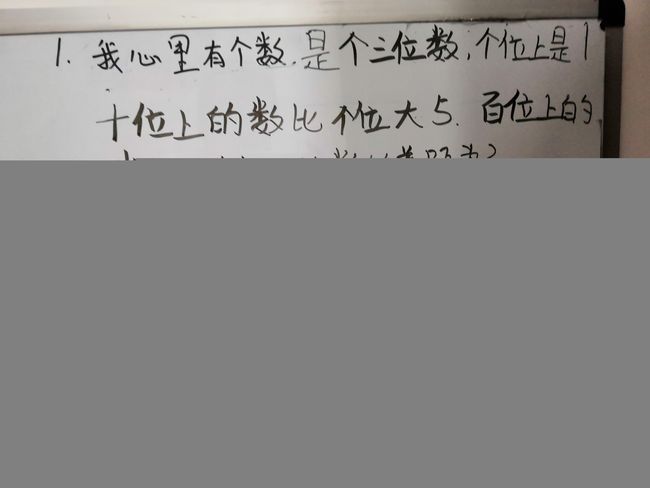 1. 我心里有个数.是个三位数,个位上是1
十位上的数比个位大5. 百位上的